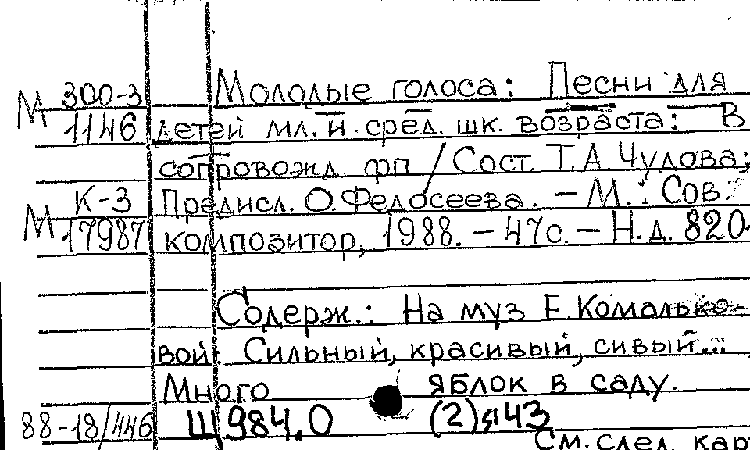 М 300-3 Молодые голоса: Песни для
1146 детей мл. и сред. шк. возраста: В
сопровожд фп / Сост Т.А Чудова;
К-3 Предисл. О.Федосеева. – М.: Сов.
М 17987 композитор, 1988. – 47с. – Н.д. 820
Содерж.: На муз Е.Комалько-
вой: Сильный, красивый, сивый...
Много яблок в саду.
88-18/446 Щ984.0 (2)я43
См. след. кар